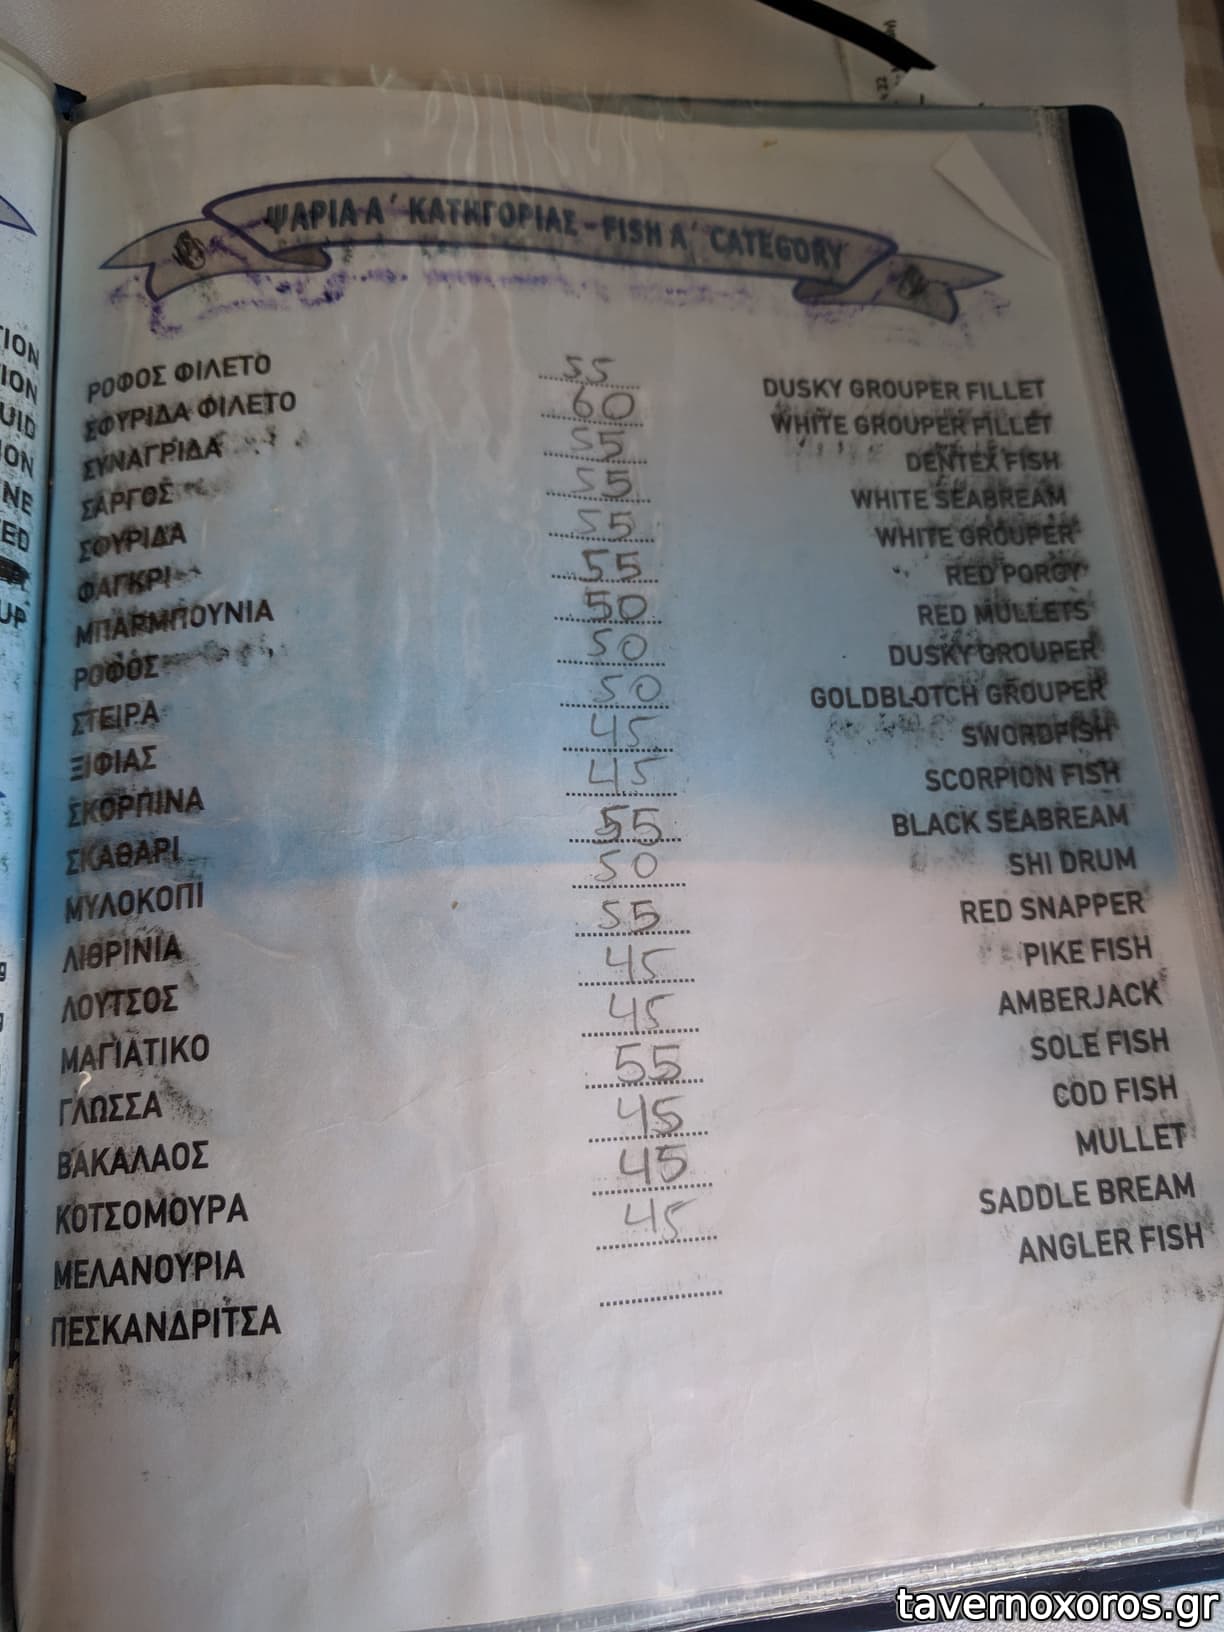 ΨΑΡΙΑ Α΄ ΚΑΤΗΓΟΡΙΑΣ - FISH A΄ CATEGORY
ΡΟΦΟΣ ΦΙΛΕΤΟ 55 DUSKY GROUPER FILLET
ΣΦΥΡΙΔΑ ΦΙΛΕΤΟ 60 WHITE GROUPER FILLET
ΣΥΝΑΓΡΙΔΑ 55 DENTEX FISH
ΣΑΡΓΟΣ 55 WHITE SEABREAM
ΣΦΥΡΙΔΑ 55 WHITE GROUPER
ΦΑΓΚΡΙ 55 RED PORGY
ΜΠΑΡΜΠΟΥΝΙΑ 50 RED MULLETS
ΡΟΦΟΣ 50 DUSKY GROUPER
ΣΤΕΙΡΑ 50 GOLDBLOTCH GROUPER
ΞΙΦΙΑΣ 45 SWORDFISH
ΣΚΟΡΠΙΝΑ 45 SCORPION FISH
ΣΚΑΘΑΡΙ 55 BLACK SEABREAM
ΜΥΛΟΚΟΠΙ 50 SHI DRUM
ΛΙΘΡΙΝΙΑ 55 RED SNAPPER
ΛΟΥΤΣΟΣ 45 PIKE FISH
ΜΑΓΙΑΤΙΚΟ 45 AMBERJACK
ΓΛΩΣΣΑ 55 SOLE FISH
ΒΑΚΑΛΑΟΣ 45 COD FISH
ΚΟΤΣΟΜΟΥΡΑ 45 MULLET
ΜΕΛΑΝΟΥΡΙΑ 45 SADDLE BREAM
ΠΕΣΚΑΝΔΡΙΤΣΑ ANGLER FISH
tavernoxoros.gr